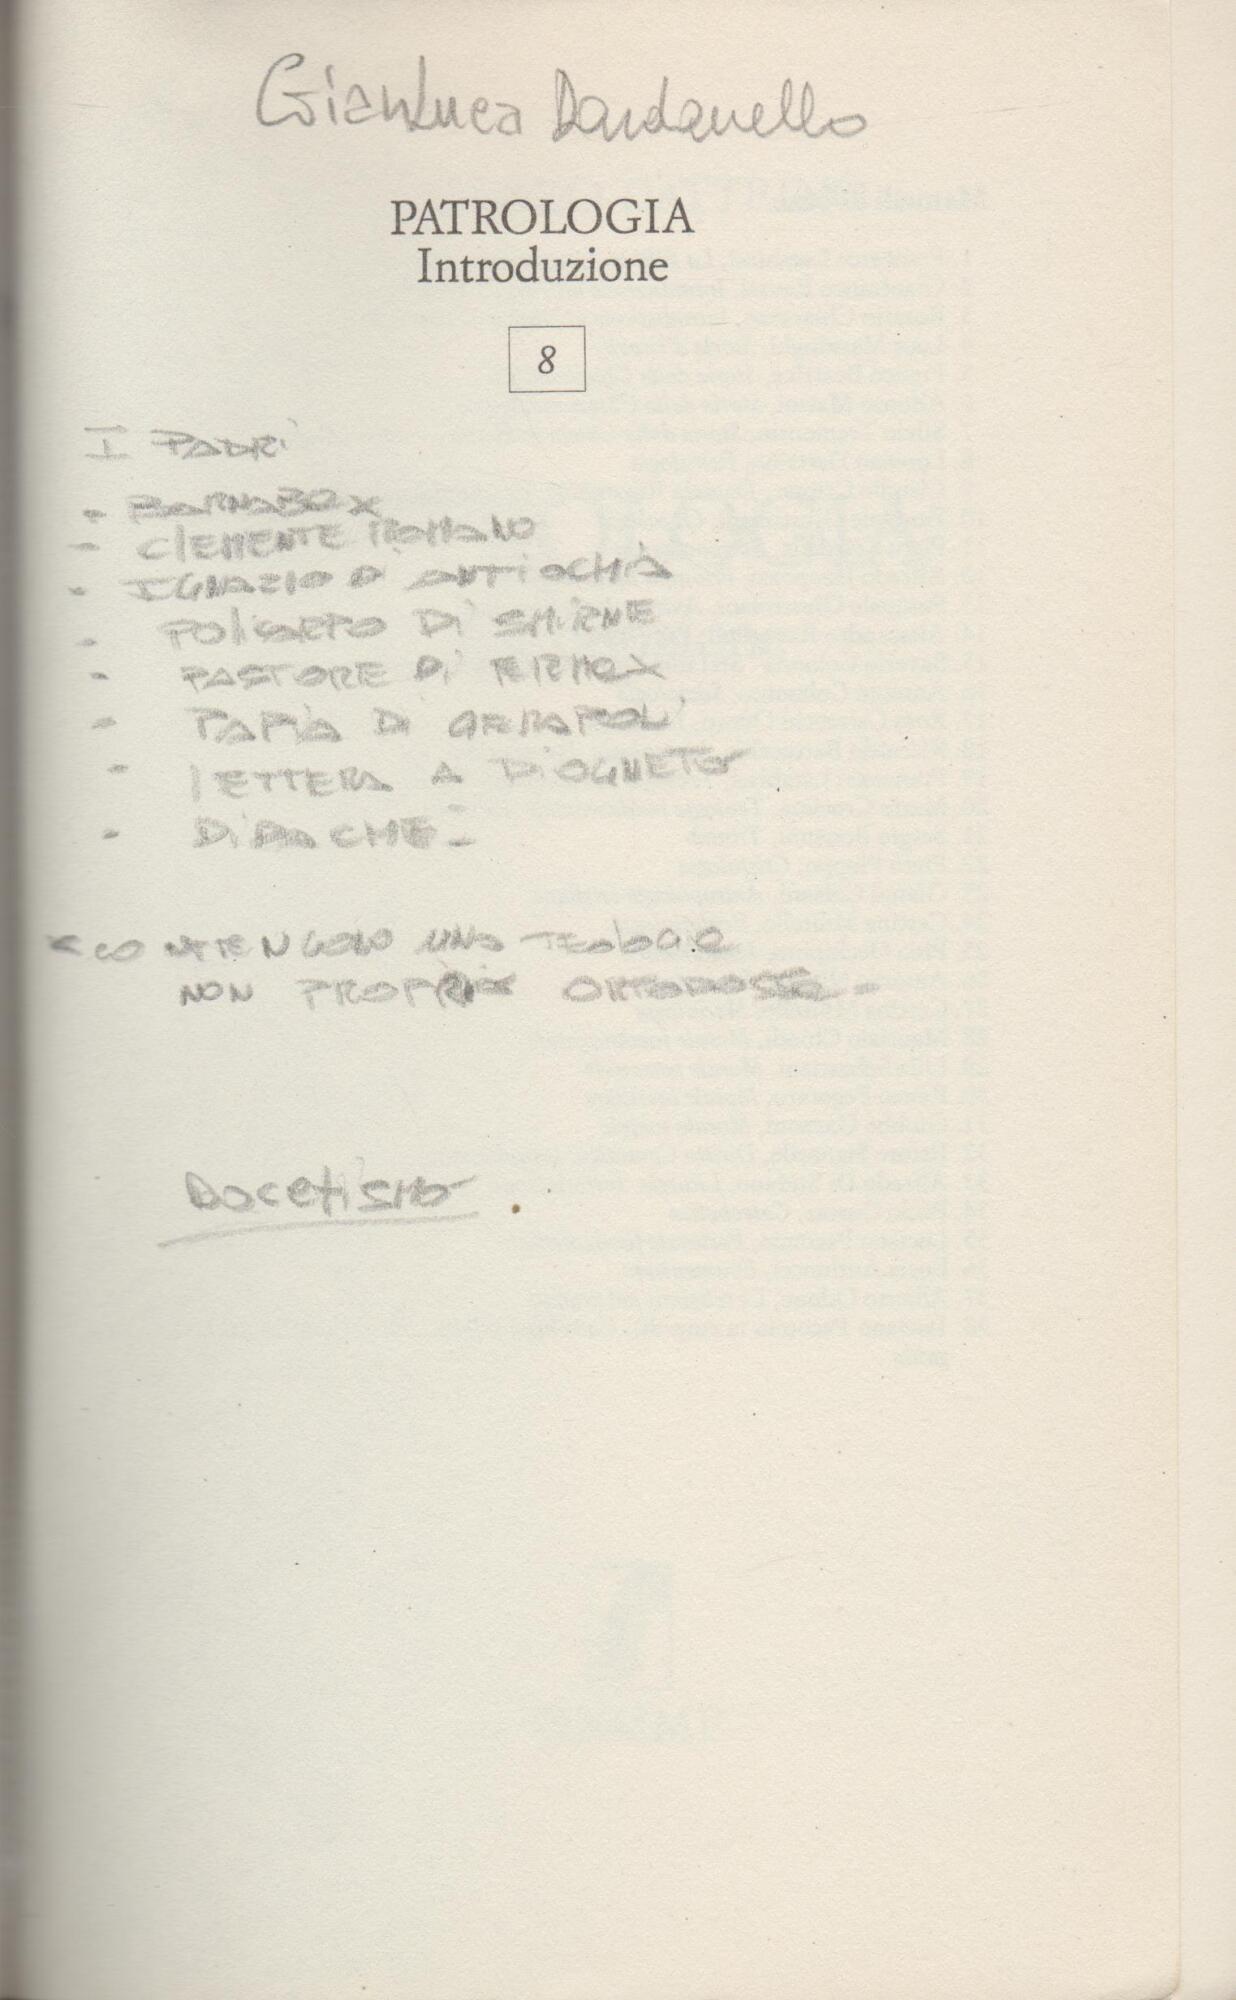 GianLuca Dardanello
PATROLOGIA
Introduzione
8
I PADRI
- BARNABA x
- CLEMENTE ROMANO
- IGNAZIO DI ANTIOCHIA
- POLICARPO DI SMIRNE
- PASTORE DI ERMA x
- PAPIA DI GERAPOLI
- LETTERA A DIOGNETO
- DIDACHÈ -
x CONTENGONO UNA TEOLOGIA
NON PROPRIA ORTODOSSA -
Docetismo